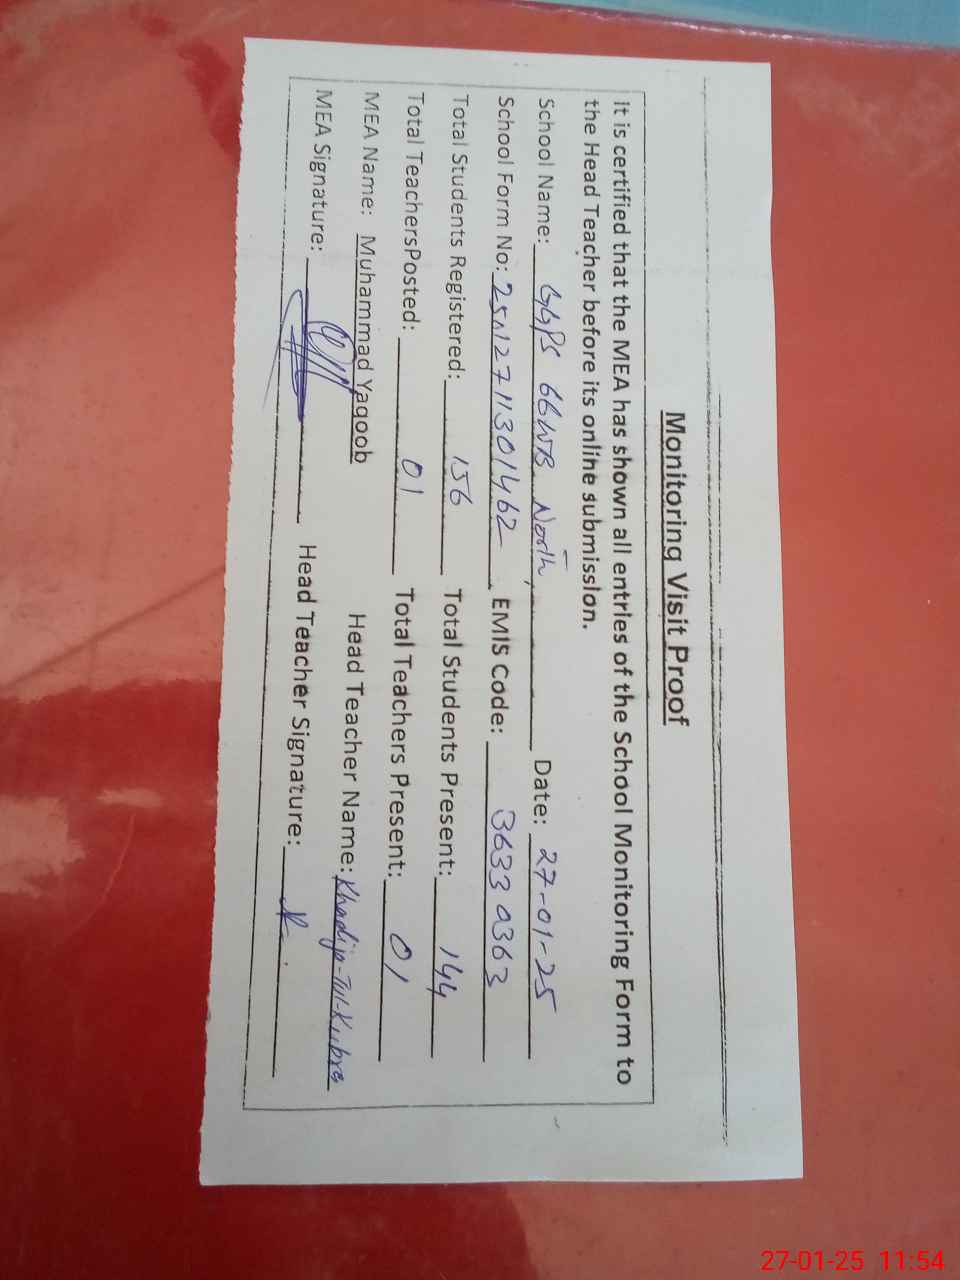 Monitoring Visit Proof
It is certified that the MEA has shown all entries of the School Monitoring Form to
the Head Teacher before its online submission.
School Name: GGPS 66WB North, Date: 27-01-25
School Form No: 250127113301462 EMIS Code: 36330363
Total Students Registered: 156 Total Students Present: 144
Total TeachersPosted: 01 Total Teachers Present: 01
MEA Name: Muhammad Yaqoob Head Teacher Name: Khadija-Tul-Kubra
MEA Signature: Head Teacher Signature:
27-01-25 11:54